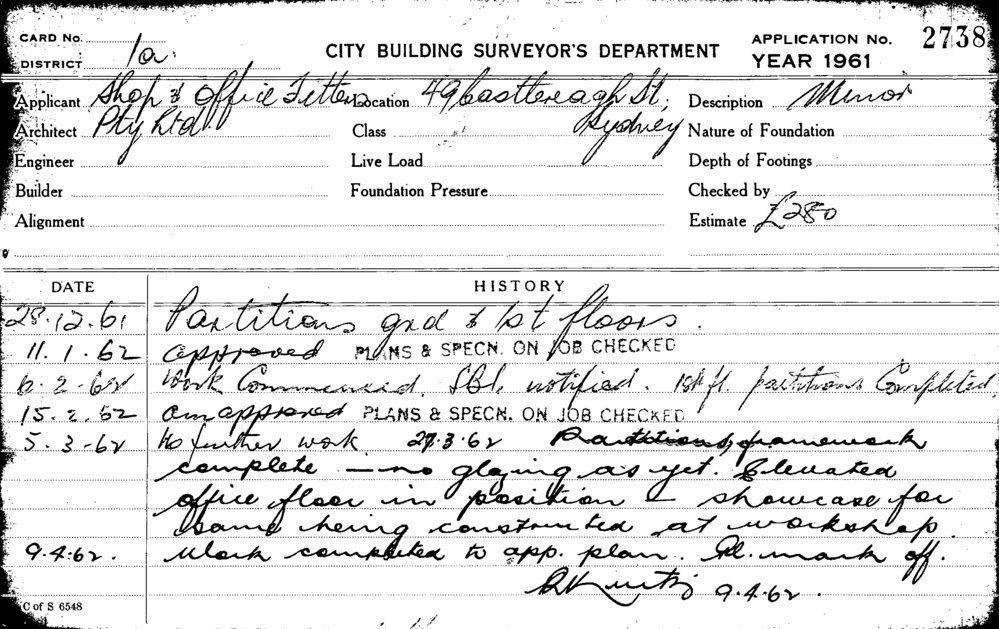 CARD No.
DISTRICT 1a.
CITY BUILDING SURVEYOR'S DEPARTMENT
APPLICATION No. 2738
YEAR 1961
Applicant Shop & Office Fitters Location 49 Castlereagh St, Description Minor
Architect Pty Ltd. Class Sydney Nature of Foundation
Engineer Live Load Depth of Footings
Builder Foundation Pressure Checked by
Alignment Estimate £280
DATE HISTORY
28.12.61 Partitions grd & 1st floors.
11.1.62 approved PLANS & SPECN. ON JOB CHECKED
6.2.62 Work Commenced. notified. 1st fl. partitions Completed
15.2.62 am approved PLANS & SPECN. ON JOB CHECKED
5.3.62 No further work 27.3.62 Partitions, framework
complete — no glazing as yet. Elevated
office floor in position — showcase for
same being constructed at workshop.
9.4.62. Work completed to app. plan. Pl. mark off.
9.4.62.
C of S 6548